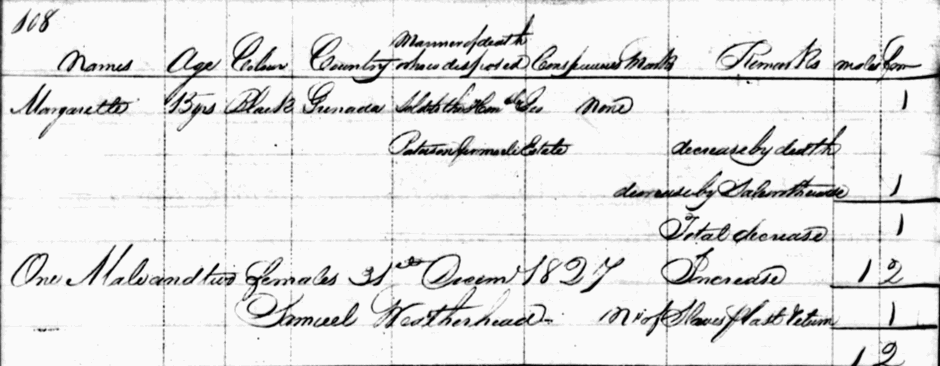 108
Names Age Colour Country Manner of death or how disposed Conspicuous Marks Remarks males Fem
Margarette 15 yrs Black Grenada Sold to the Hon ble Geo None 1
Paterson Estate decrease by death
decrease by Sale 1
Total decrease 1
One Male and two females 31st Decem 1827 Increase 1 2
Samuel Wotherhead No of Slaves last return 1
1 2